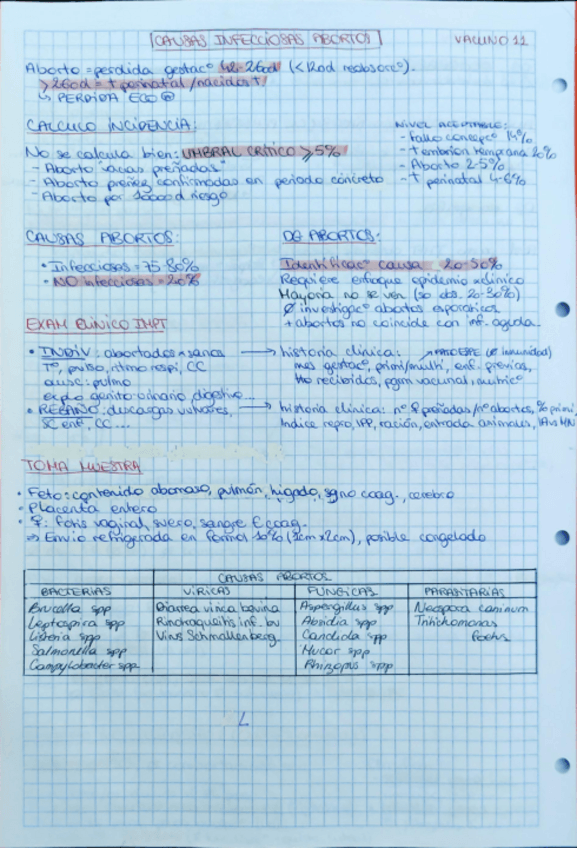 CAUSAS INFECCIOSAS ABORTOS
VACUNO 11
Aborto = perdida gestacº 42-260d (<42od reabsorcº).
>260d = † perinatal /nacidos †
↳ PERDIDA ECO
CALCULO INCIDENCIA:
No se calcula bien: UMBRAL CRÍTICO ≥5%
- Aborto vacas preñadas
- Aborto preñez confirmadas en periodo concreto
- Aborto por 1000 d riesgo
NIVEL ACEPTABLE:
- Fallo concepcº 14%
- † embrion temprana 20%
- Aborto 2-5%
- † perinatal 4-6%
CAUSAS ABORTOS:
• Infecciosas = 75-80%
• NO infecciosas = 20%
DG ABORTOS:
Identificacº causa 20-50%
Requiere enfoque epidemio + clinico
Mayoria no se ven (so obs. 20-30%)
Ø investigacº abortos esporáticos
+ abortos no coincide con inf. aguda.
EXAM CLINICO IMPT
• INDIV: abortados + sanos
Tº, pulso, ritmo respi, CC
ausc: pulmo
explo genito-urinario, digestivo...
→ historia clinica:
mes gestacº, primi/multi, enf. previas,
tto recibidos, pgrm vacunal, nutricº
• REBAÑO: descargas vulvares,
SC enf, CC...
→ historia clinica: nº ♀ preñadas/nº abortos, % primi
Indice repro, IPP, ración, entrada animales, IA vs MN
TOMA MUESTRA
• Feto: contenido abomaso, pulmón, higado, sgno coag., cerebro
• Placenta entero
• ♀: flujo vaginal, suero, sangre coag.
⇒ Envio refrigerada en formol 10% (1cm x 2cm), posible congelado
CAUSAS ABORTOS
BACTERIAS VíRICAS FUNGICAS PARASITARIAS
Brucella spp Diarrea virica bovina Aspergillus spp Neospora caninum
Leptospira spp Rinotraqueitis inf. bv Absidia spp Tritichomonas
Listeria spp Virus Schmallenberg Candida spp foetus
Salmonella spp Mucor spp
Campylobacter spp Rhizopus spp